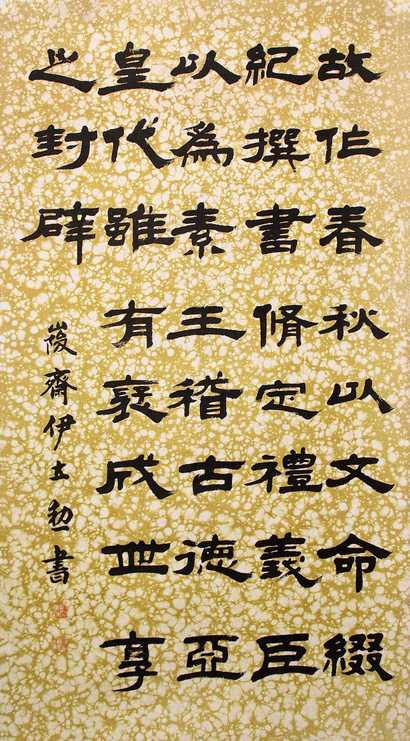 故作春秋以文命綴
紀撰書脩定禮義臣
以為素王稽古德亞
皇代雖有褒成世享
之封辟
齋伊士書